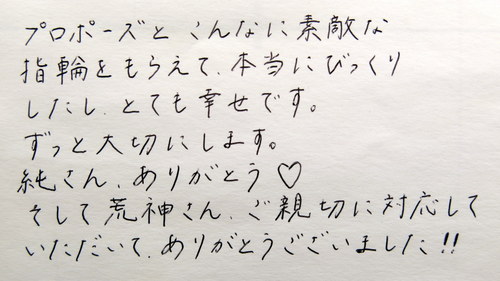 プロポーズと こんなに素敵な
指輪をもらえて、本当にびっくり
したし、とても幸せです。
ずっと大切にします。
純さん、ありがとう♡
そして荒神さん、ご親切に対応して
いただいて、ありがとうございました!!